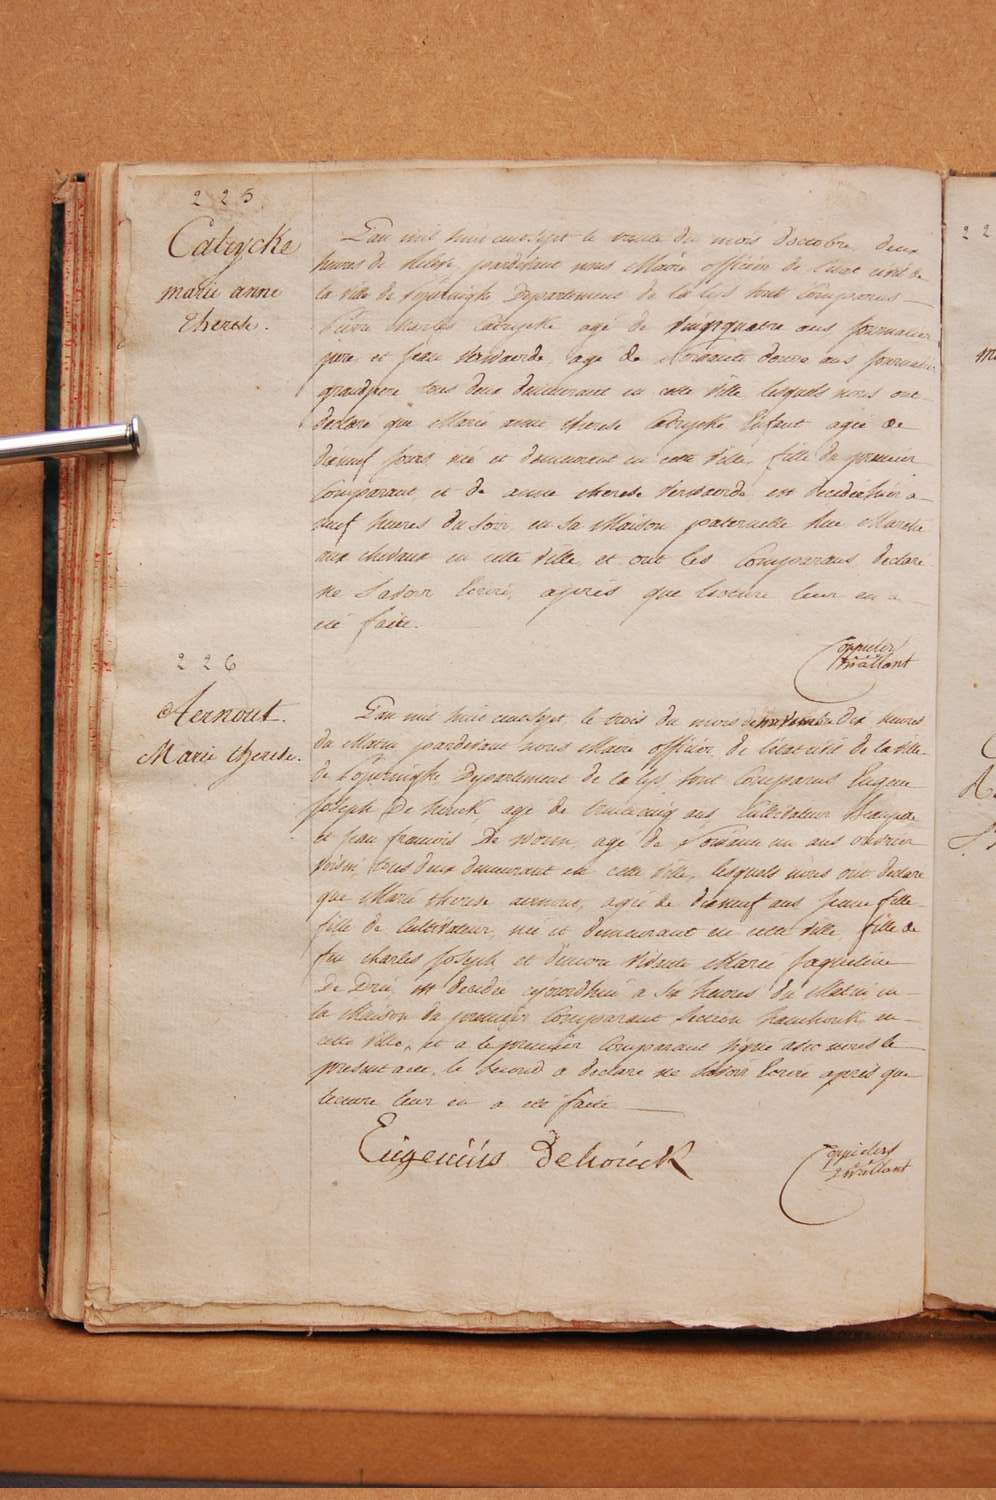 225
Catrycke
marie anne
therese.
L'an mil huit cent sept le trente du mois d'octobre, deux
heures de relevée, pardevant nous Maire officier de l'état civil de
la ville de Poperinghe Departement de la Lys sont Comparus
Pierre Charles Catrycke agé de vingtquatre ans journalier
pere et jean Verhaerde, agé de soixante douze ans journalier
grandpere tous deux demeurant en cette ville, lesquels nous ont
declaré que Marie anne therese Catrycke Enfant agée de
dixneuf jours, née et demeurant en cette ville, fille du premier
Comparant, et de anne therese Verhaerde est decedée hier a
neuf heures du soir, en sa Maison paternelle Rue Marché
aux chevaux en cette ville, et ont les Comparans declaré
ne savoir Ecrire, après que lecture leur en a
été faite.
226
Aernout.
Marie therese.
L'an mil huit cent sept, le trois du mois de novembre dix heures
du Matin pardevant nous Maire officier de l'état civil de la ville
de Poperinghe Departement de la Lys sont Comparus Eugene
joseph De houck, agé de ans Cultivateur
et jean francois De agé de Soixante un ans ouvrier
voisin, tous deux demeurant en cette ville, lesquels nous ont declaré
que Marie therese aernout, agée de dixneuf ans jeune fille
fille de Cultivateur, née et demeurant en cette ville fille de
feu charles joseph et d'encore vivante Marie jaqueline
De est decedée aujourdhui a six heures du Matin en
la Maison du premier Comparant Section en
cette ville, et a le premier Comparant signé avec nous le
present acte, le second a declaré ne savoir Ecrire après que
lecture leur en a été faite
Eugeniüs Dehoück